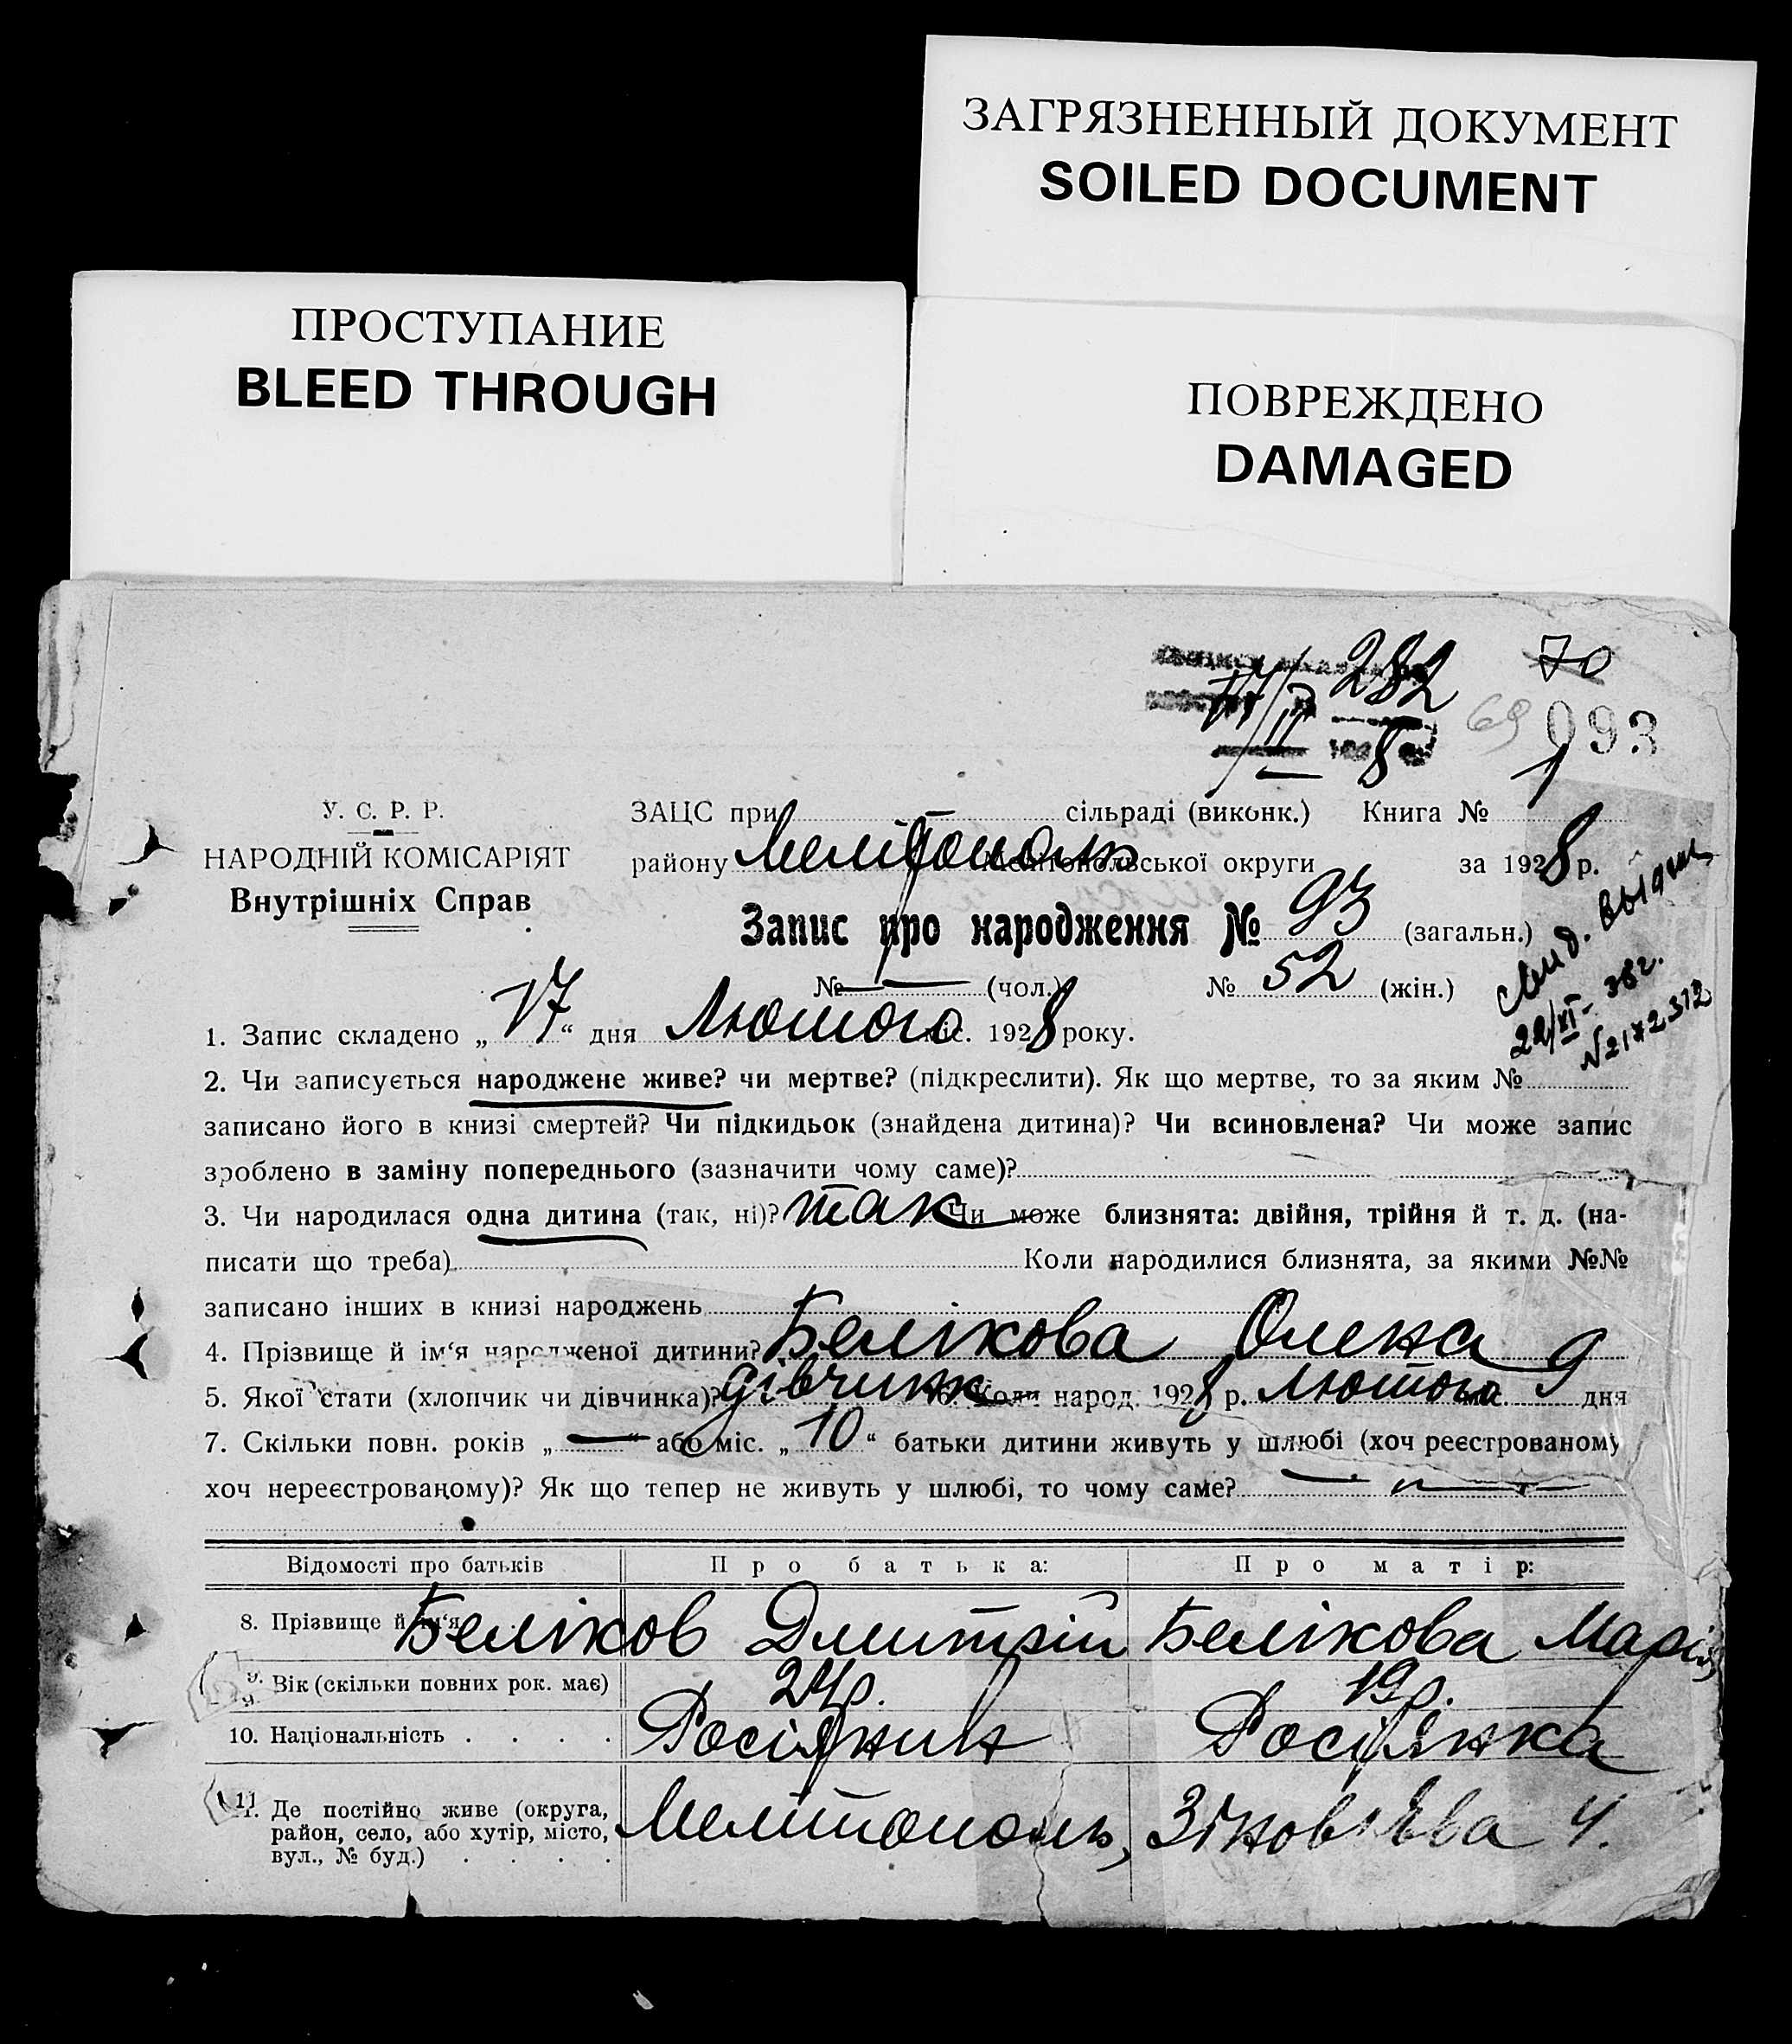 ЗАГРЯЗНЕННЫЙ ДОКУМЕНТ
SOILED DOCUMENT
ПРОСТУПАНИЕ
BLEED THROUGH
ПОВРЕЖДЕНО
DAMAGED
282
70
69 093
У. С. Р. Р.
НАРОДНІЙ КОМІСАРІЯТ
Внутрішніх Справ
ЗАЦС при сільраді (виконк.) Книга № 1
району Мелітополь Мелітопольської округи за 1928 р.
Запис про народження № 93 (загальн.)
№ — (чол.) № 52 (жін.)
видан
22/VI - 38 г.
N 2172312
1. Запис складено „17“ дня Лютого міс. 1928 року.
2. Чи записується народжене живе? чи мертве? (підкреслити). Як що мертве, то за яким №
записано його в книзі смертей? Чи підкидьок (знайдена дитина)? Чи всиновлена? Чи може запис
зроблено в заміну попереднього (зазначити чому саме)?
3. Чи народилася одна дитина (так, ні)? так Чи може близнята: двійня, трійня й т. д. (на-
писати що треба) Коли народилися близнята, за якими №№
записано інших в книзі народжень
4. Прізвище й ім‘я народженої дитини? Белікова Олена
5. Якої стати (хлопчик чи дівчинка)? дівчинк 6. Коли народ. 1928 р. Лютого міс. 9 дня
7. Скільки повн. років „—“ або міс. „10“ батьки дитини живуть у шлюбі (хоч реєстрованому
хоч нереєстрованому)? Як що тепер не живуть у шлюбі, то чому саме?
Відомості про батьків Про батька: Про матір:
8. Прізвище й ім‘я Беліков Дмитрій Белікова Марія
9. Вік (скільки повних рок. має) 24р. 19р.
10. Національність . . . . Росіянин Росіянка
11. Де постійно живе (округа,
район, село, або хутір, місто,
вул., № буд.) . . . . Мелітополь, Зіновʼєва 4.